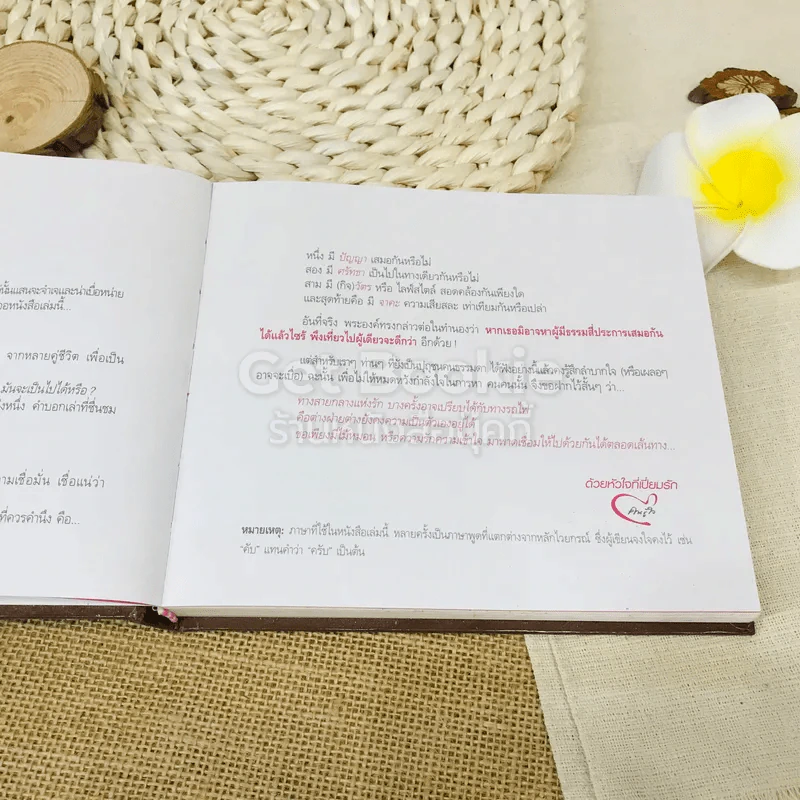 นั้นแสนจะจำเจและน่าเบื่อหน่าย
อหนังสือเล่มนี้...
จากหลายคู่ชีวิต เพื่อเป็น
มันจะเป็นไปได้หรือ ?
งหนึ่ง คำบอกเล่าที่ชื่นชม
ามเชื่อมั่น เชื่อแน่ว่า
ที่ควรคำนึง คือ...
หนึ่ง มี ปัญญา เสมอกันหรือไม่
สอง มี ศรัทธา เป็นไปในทางเดียวกันหรือไม่
สาม มี (กิจ)วัตร หรือ ไลฟ์สไตล์ สอดคล้องกันเพียงใด
และสุดท้ายคือ มี จาคะ ความเสียสละ เท่าเทียมกันหรือเปล่า
อันที่จริง พระองค์ทรงกล่าวต่อในทำนองว่า หากเธอมิอาจหาผู้มีธรรมสี่ประการเสมอกัน
ได้แล้วไซร้ พึงเที่ยวไปผู้เดียวจะดีกว่า อีกด้วย !
แต่สำหรับเราๆ ท่านๆ ที่ยังเป็นปุถุชนคนธรรมดา ได้ฟังอย่างนี้แล้วคงรู้สึกลำบากใจ (หรือเผลอๆ
อาจจะเบื่อ) ฉะนั้น เพื่อไม่ให้หมดหวังกำลังใจในการหา คนคนนั้น จึงขอฝากไว้สั้นๆ ว่า...
ทางสายกลางแห่งรัก บางครั้งอาจเปรียบได้กับทางรถไฟ
คือต่างฝ่ายต่างยังคงความเป็นตัวเองอยู่ได้
ขอเพียงมีไม้หมอน หรือความรักความเข้าใจ มาพาดเชื่อมให้ไปด้วยกันได้ตลอดเส้นทาง...
ด้วยหัวใจที่เปี่ยมรัก
หมายเหตุ: ภาษาที่ใช้ในหนังสือเล่มนี้ หลายครั้งเป็นภาษาพูดที่แตกต่างจากหลักไวยกรณ์ ซึ่งผู้เขียนจงใจคงไว้ เช่น
"คับ" แทนคำว่า "ครับ" เป็นต้น
GoodBookie
ร้านหนังสือบุ๊คกี้